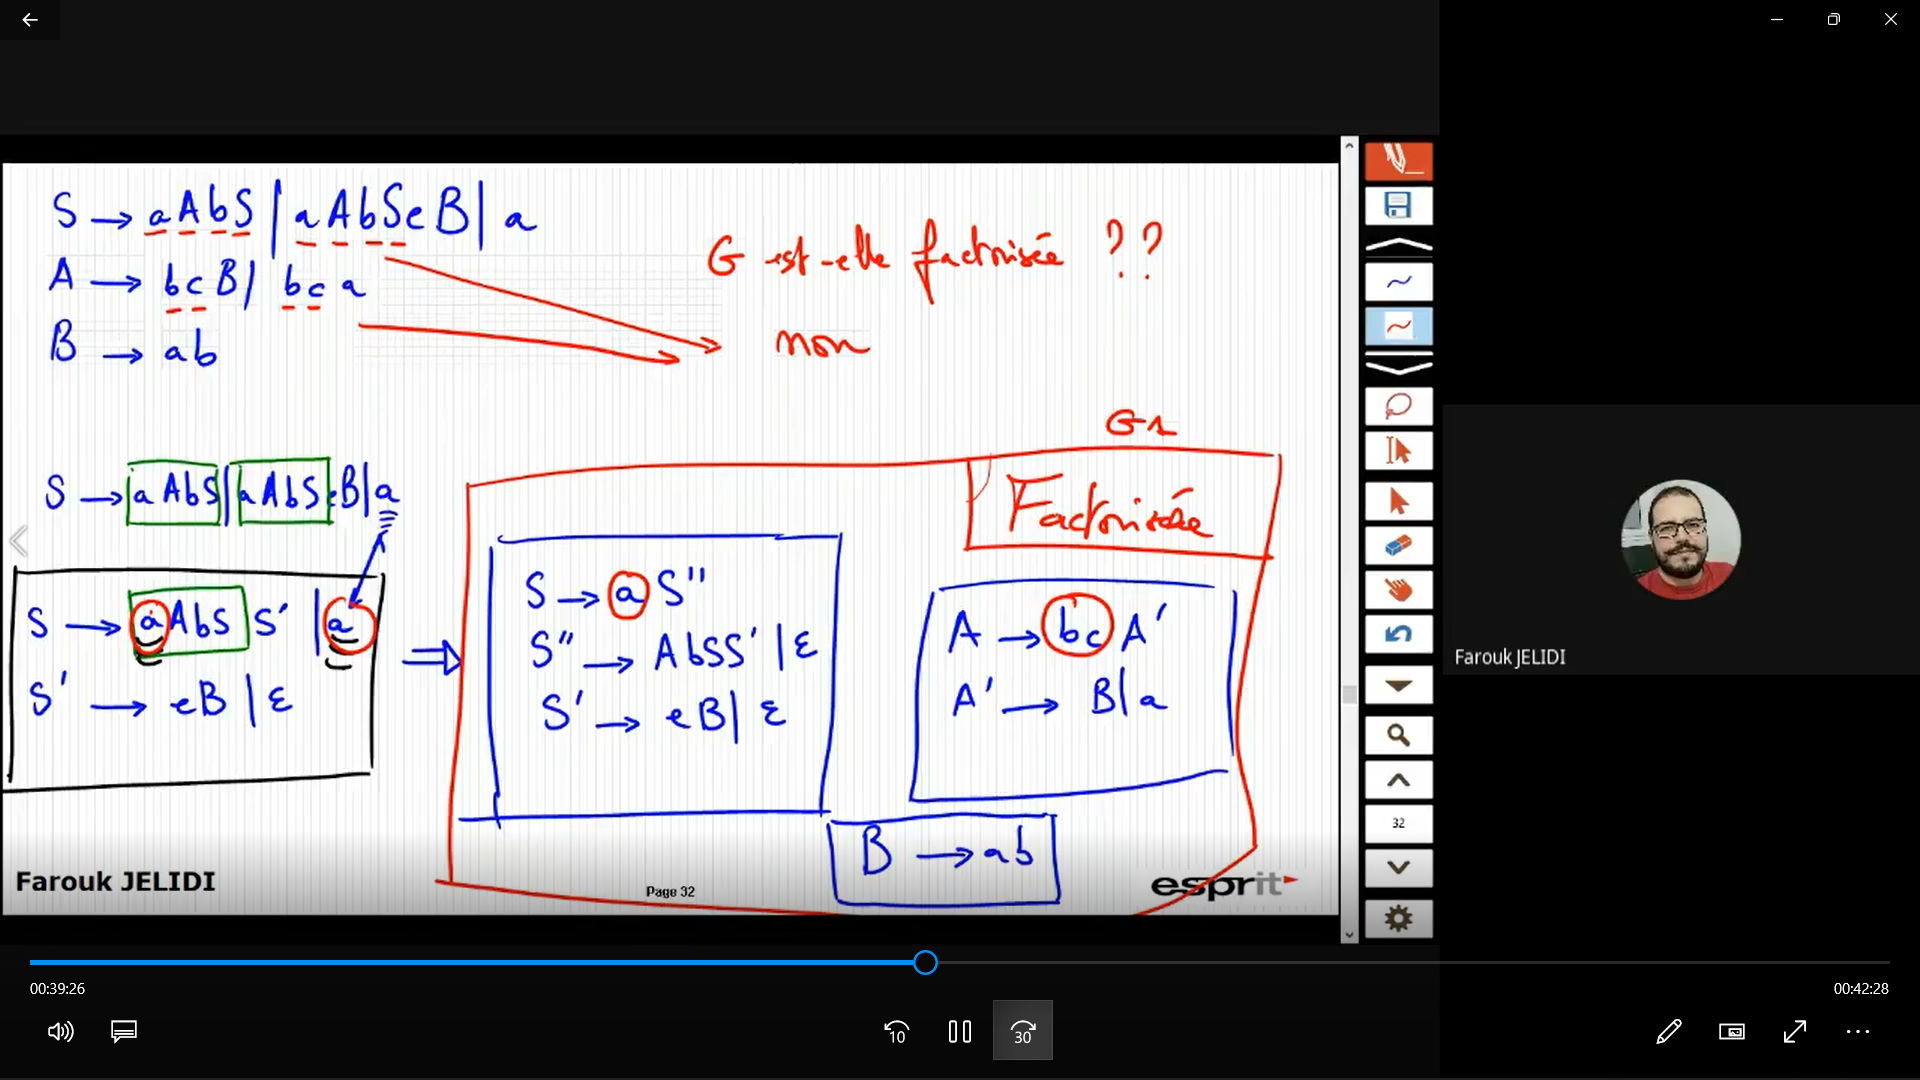 S → aAbS | aAbSeB | a
A → bcB | bca
B → ab
G est-elle factorisée ??
non
G1
Factorisée
S → aAbS | aAbSeB | a
S → aAbS S' | a
S' → eB | ε
S → a S''
S'' → AbSS' | ε
S' → eB | ε
A → bc A'
A' → B | a
B → ab
Farouk JELIDI
Page 32
esprit
32
Farouk JELIDI
00:39:26
00:42:28
10
30